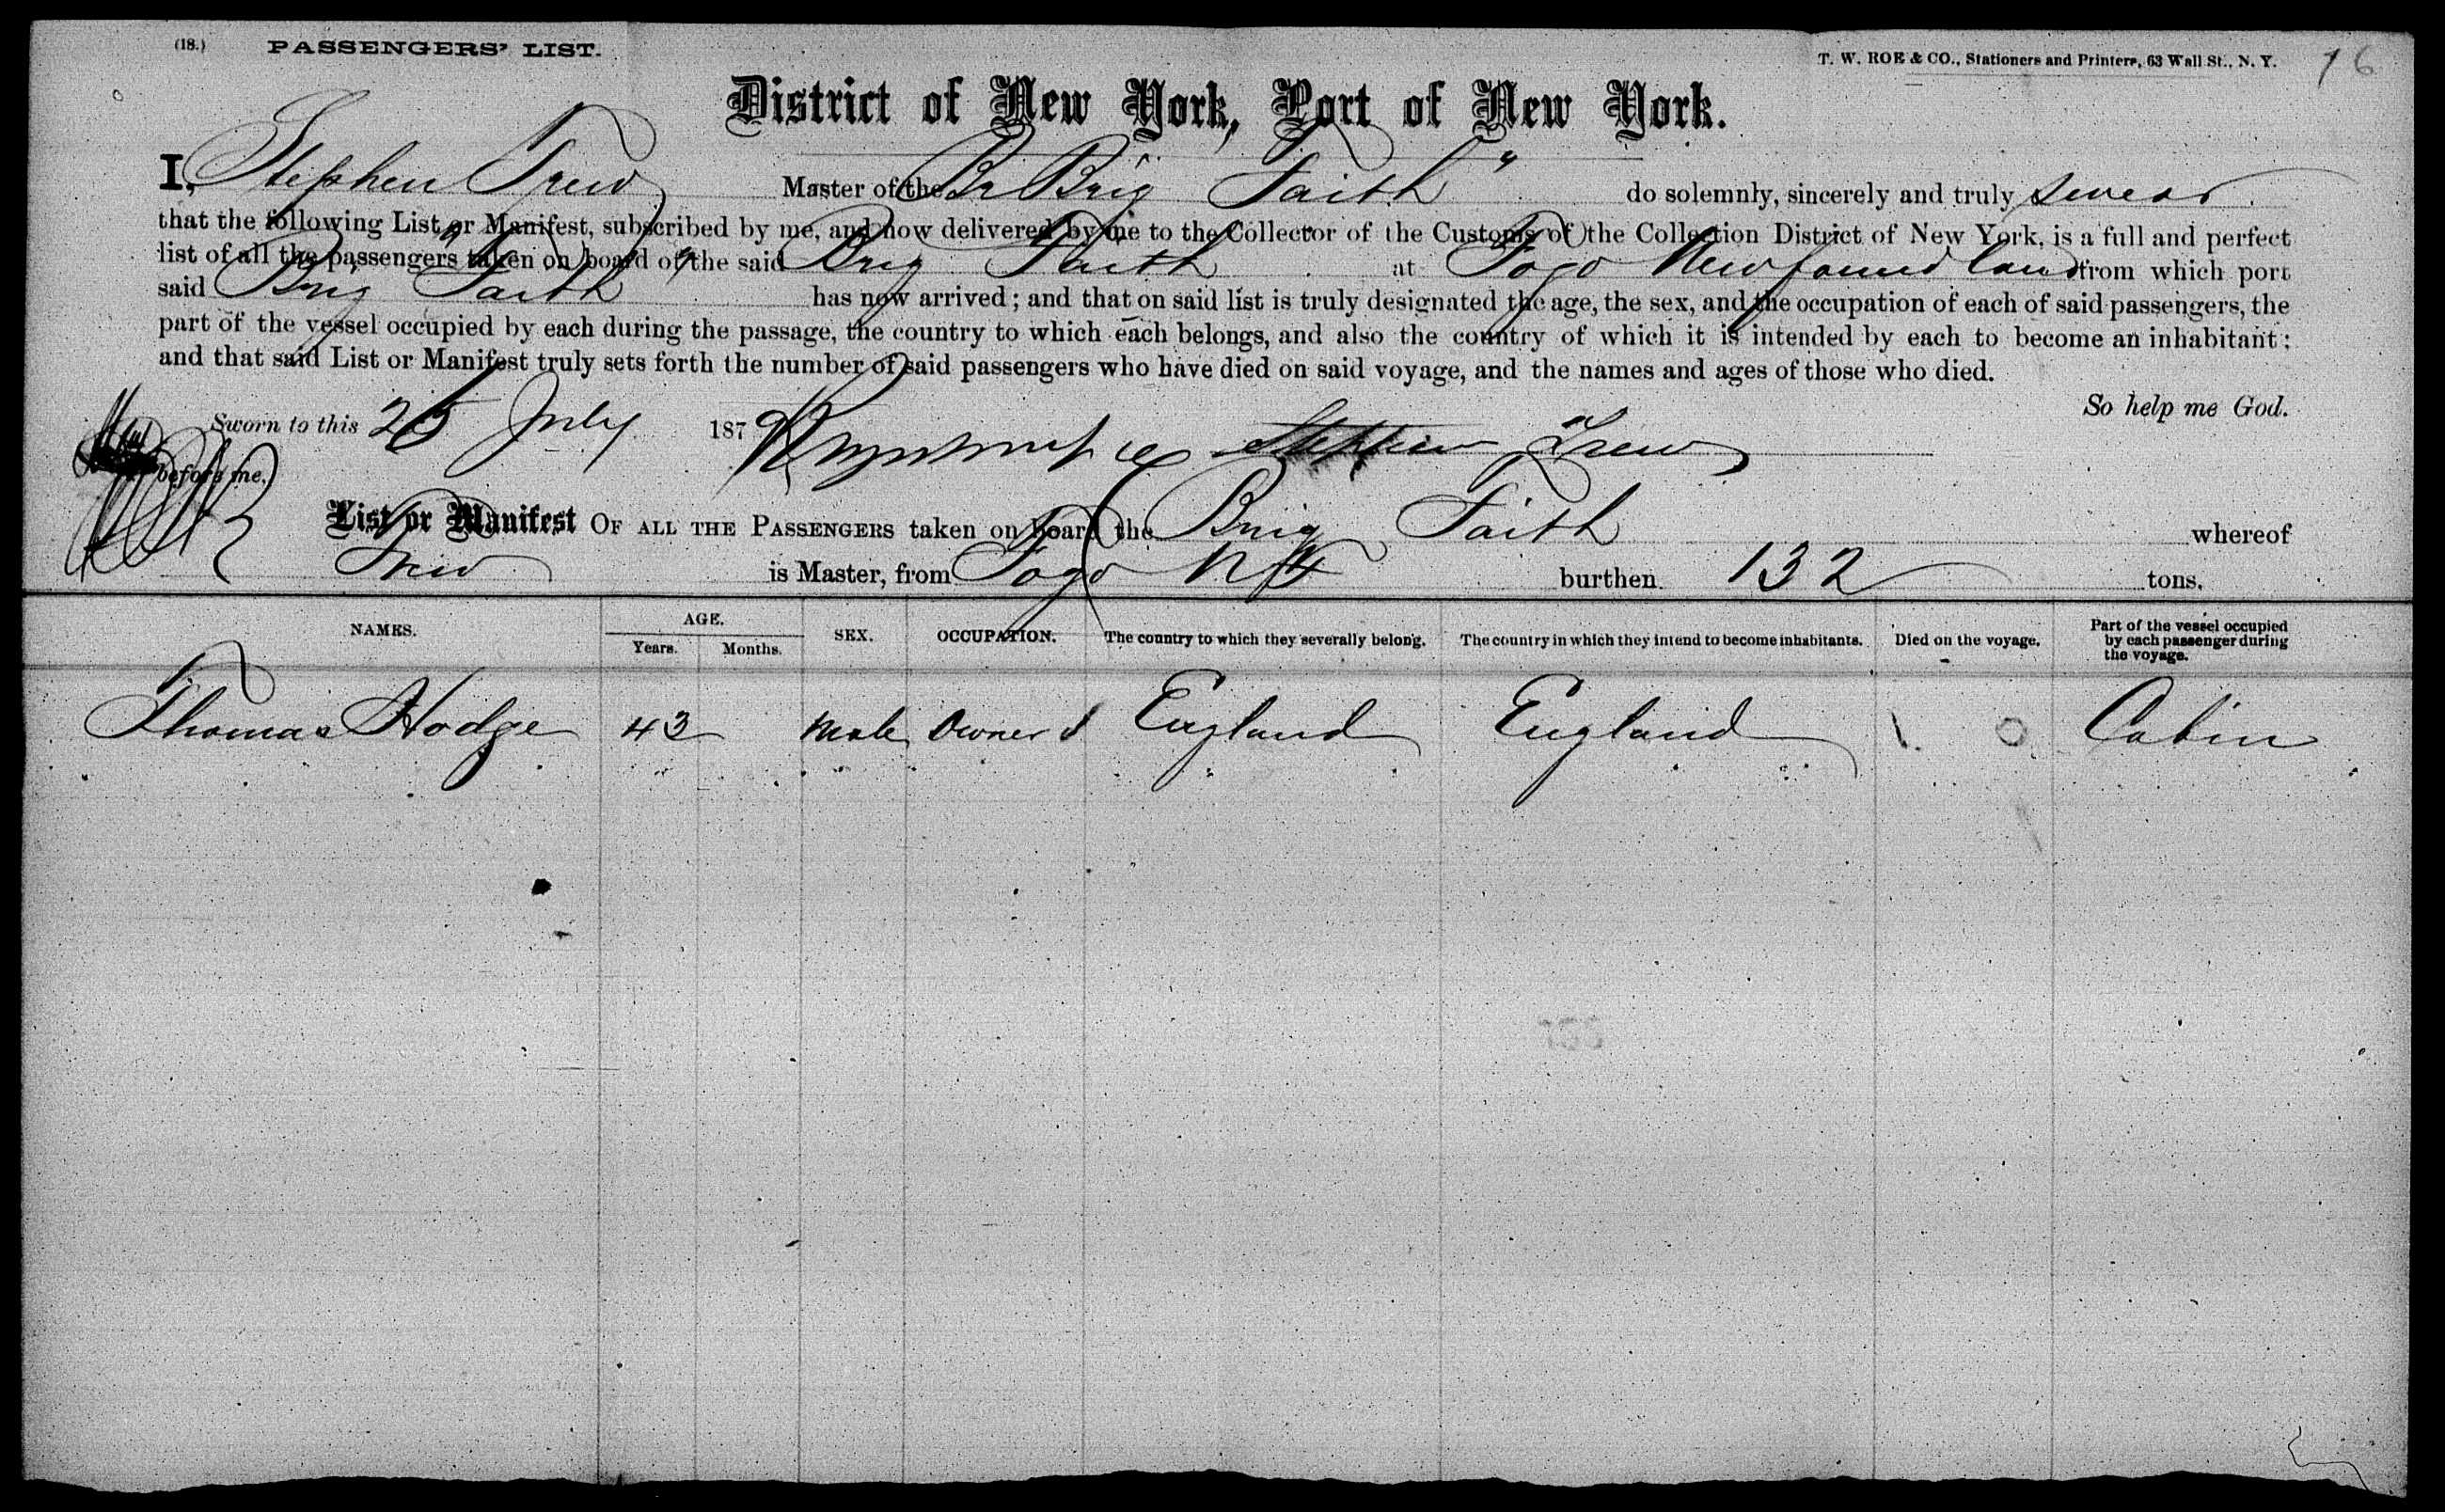 (18.) PASSENGERS' LIST. T. W. ROE & CO., Stationers and Printers, 63 Wall St., N. Y. 76
District of New York, Port of New York.
I, Stephen Trew Master of the Br Brig "Faith" do solemnly, sincerely and truly swear
that the following List or Manifest, subscribed by me, and now delivered by me to the Collector of the Customs of the Collection District of New York, is a full and perfect
list of all the passengers taken on board of the said Brig Faith at Fogo Newfoundland from which port
said Brig "Faith" has now arrived; and that on said list is truly designated the age, the sex, and the occupation of each of said passengers, the
part of the vessel occupied by each during the passage, the country to which each belongs, and also the country of which it is intended by each to become an inhabitant;
and that said List or Manifest truly sets forth the number of said passengers who have died on said voyage, and the names and ages of those who died.
So help me God.
Sworn to this 25 July 187 Stephen Trew
before me,
List or Manifest OF ALL THE PASSENGERS taken on board the Brig Faith whereof
Trew is Master, from Fogo NF burthen 132 tons.
NAMES. AGE. Years. Months. SEX. OCCUPATION. The country to which they severally belong. The country in which they intend to become inhabitants. Died on the voyage. Part of the vessel occupied by each passenger during the voyage.
Thomas Hodge 43 Male Owner England England Cabin